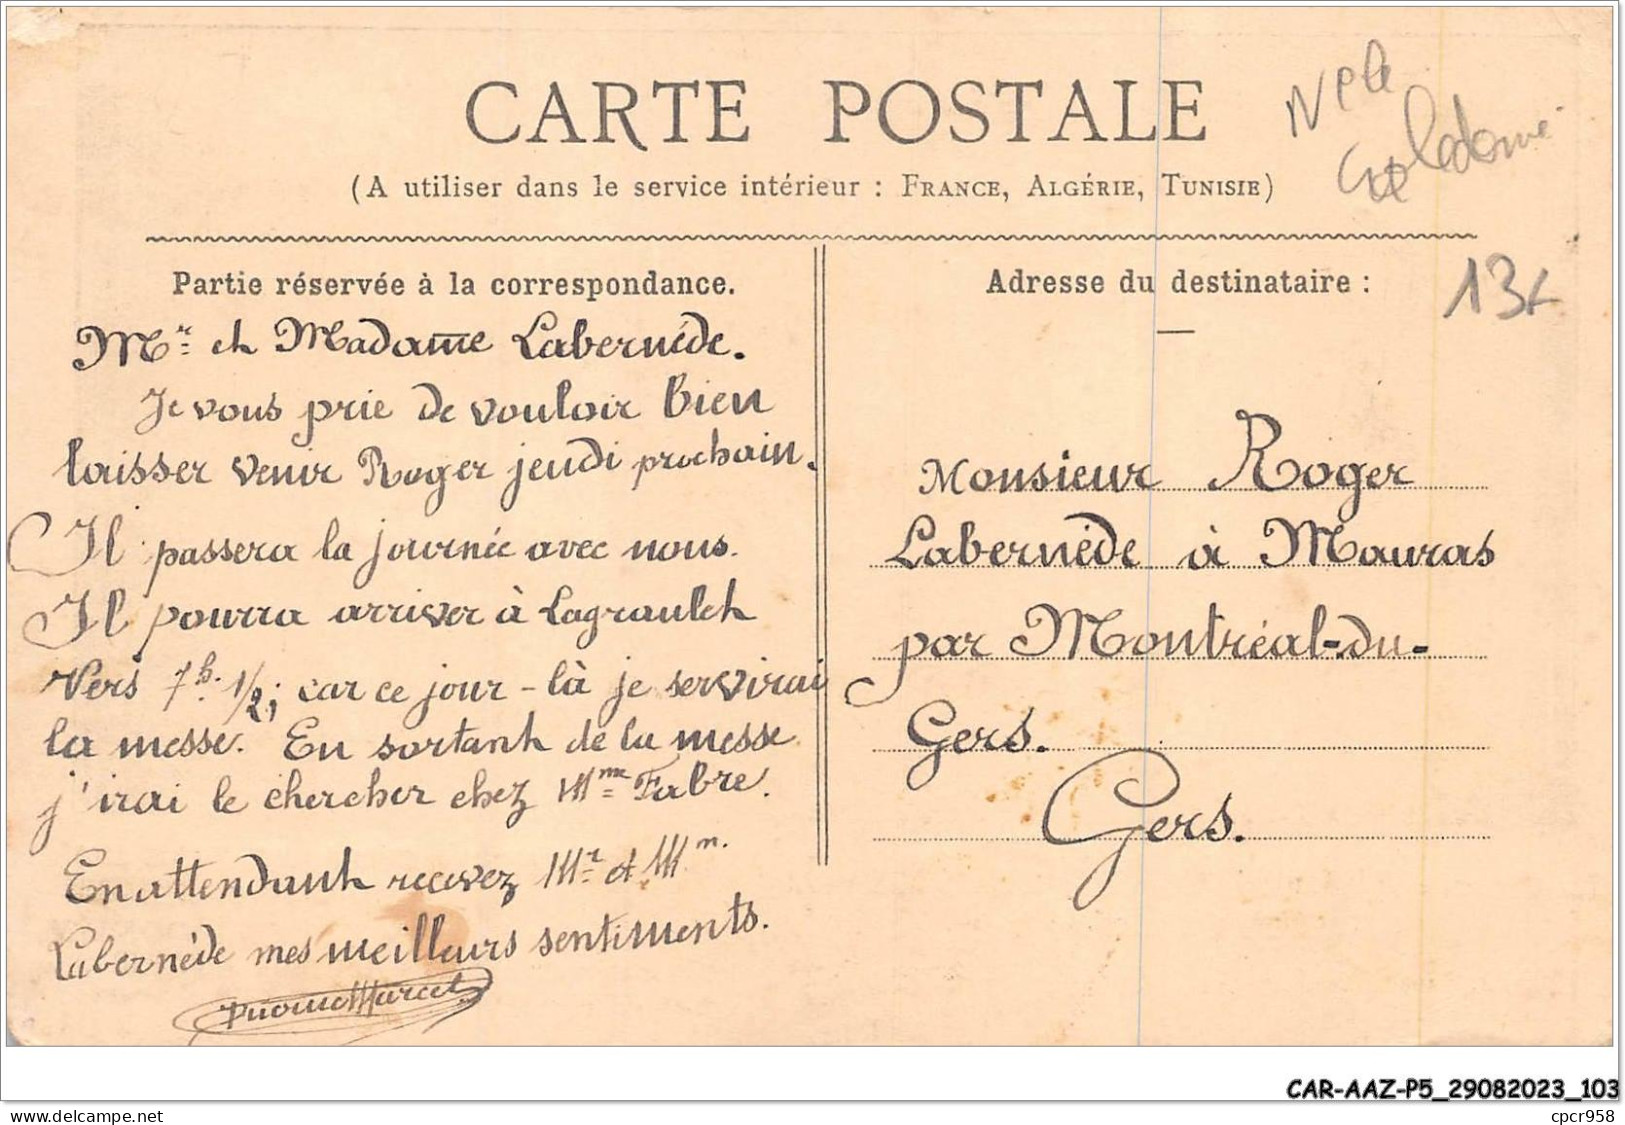 CARTE POSTALE
(A utiliser dans le service intérieur : FRANCE, ALGÉRIE, TUNISIE)
Nele
Caledonie
13€
Partie réservée à la correspondance.
Mr et Madame Labernéde.
Je vous prie de vouloir bien
laisser venir Roger jeudi prochain.
Il passera la journée avec nous.
Il pourra arriver à Lagraulet
vers 7h. 1/2; car ce jour-là je servirai
la messe. En sortant de la messe
j'irai le chercher chez Mme Fabre.
En attendant recevez Mr et Mm.
Labernède mes meilleurs sentiments.
Marcel
Adresse du destinataire :
Monsieur Roger
Labernéde à Mouras
par Montréal-du-
Gers.
Gers.
CAR-AAZ-P5_29082023_103
delcampe.net
cpcr958